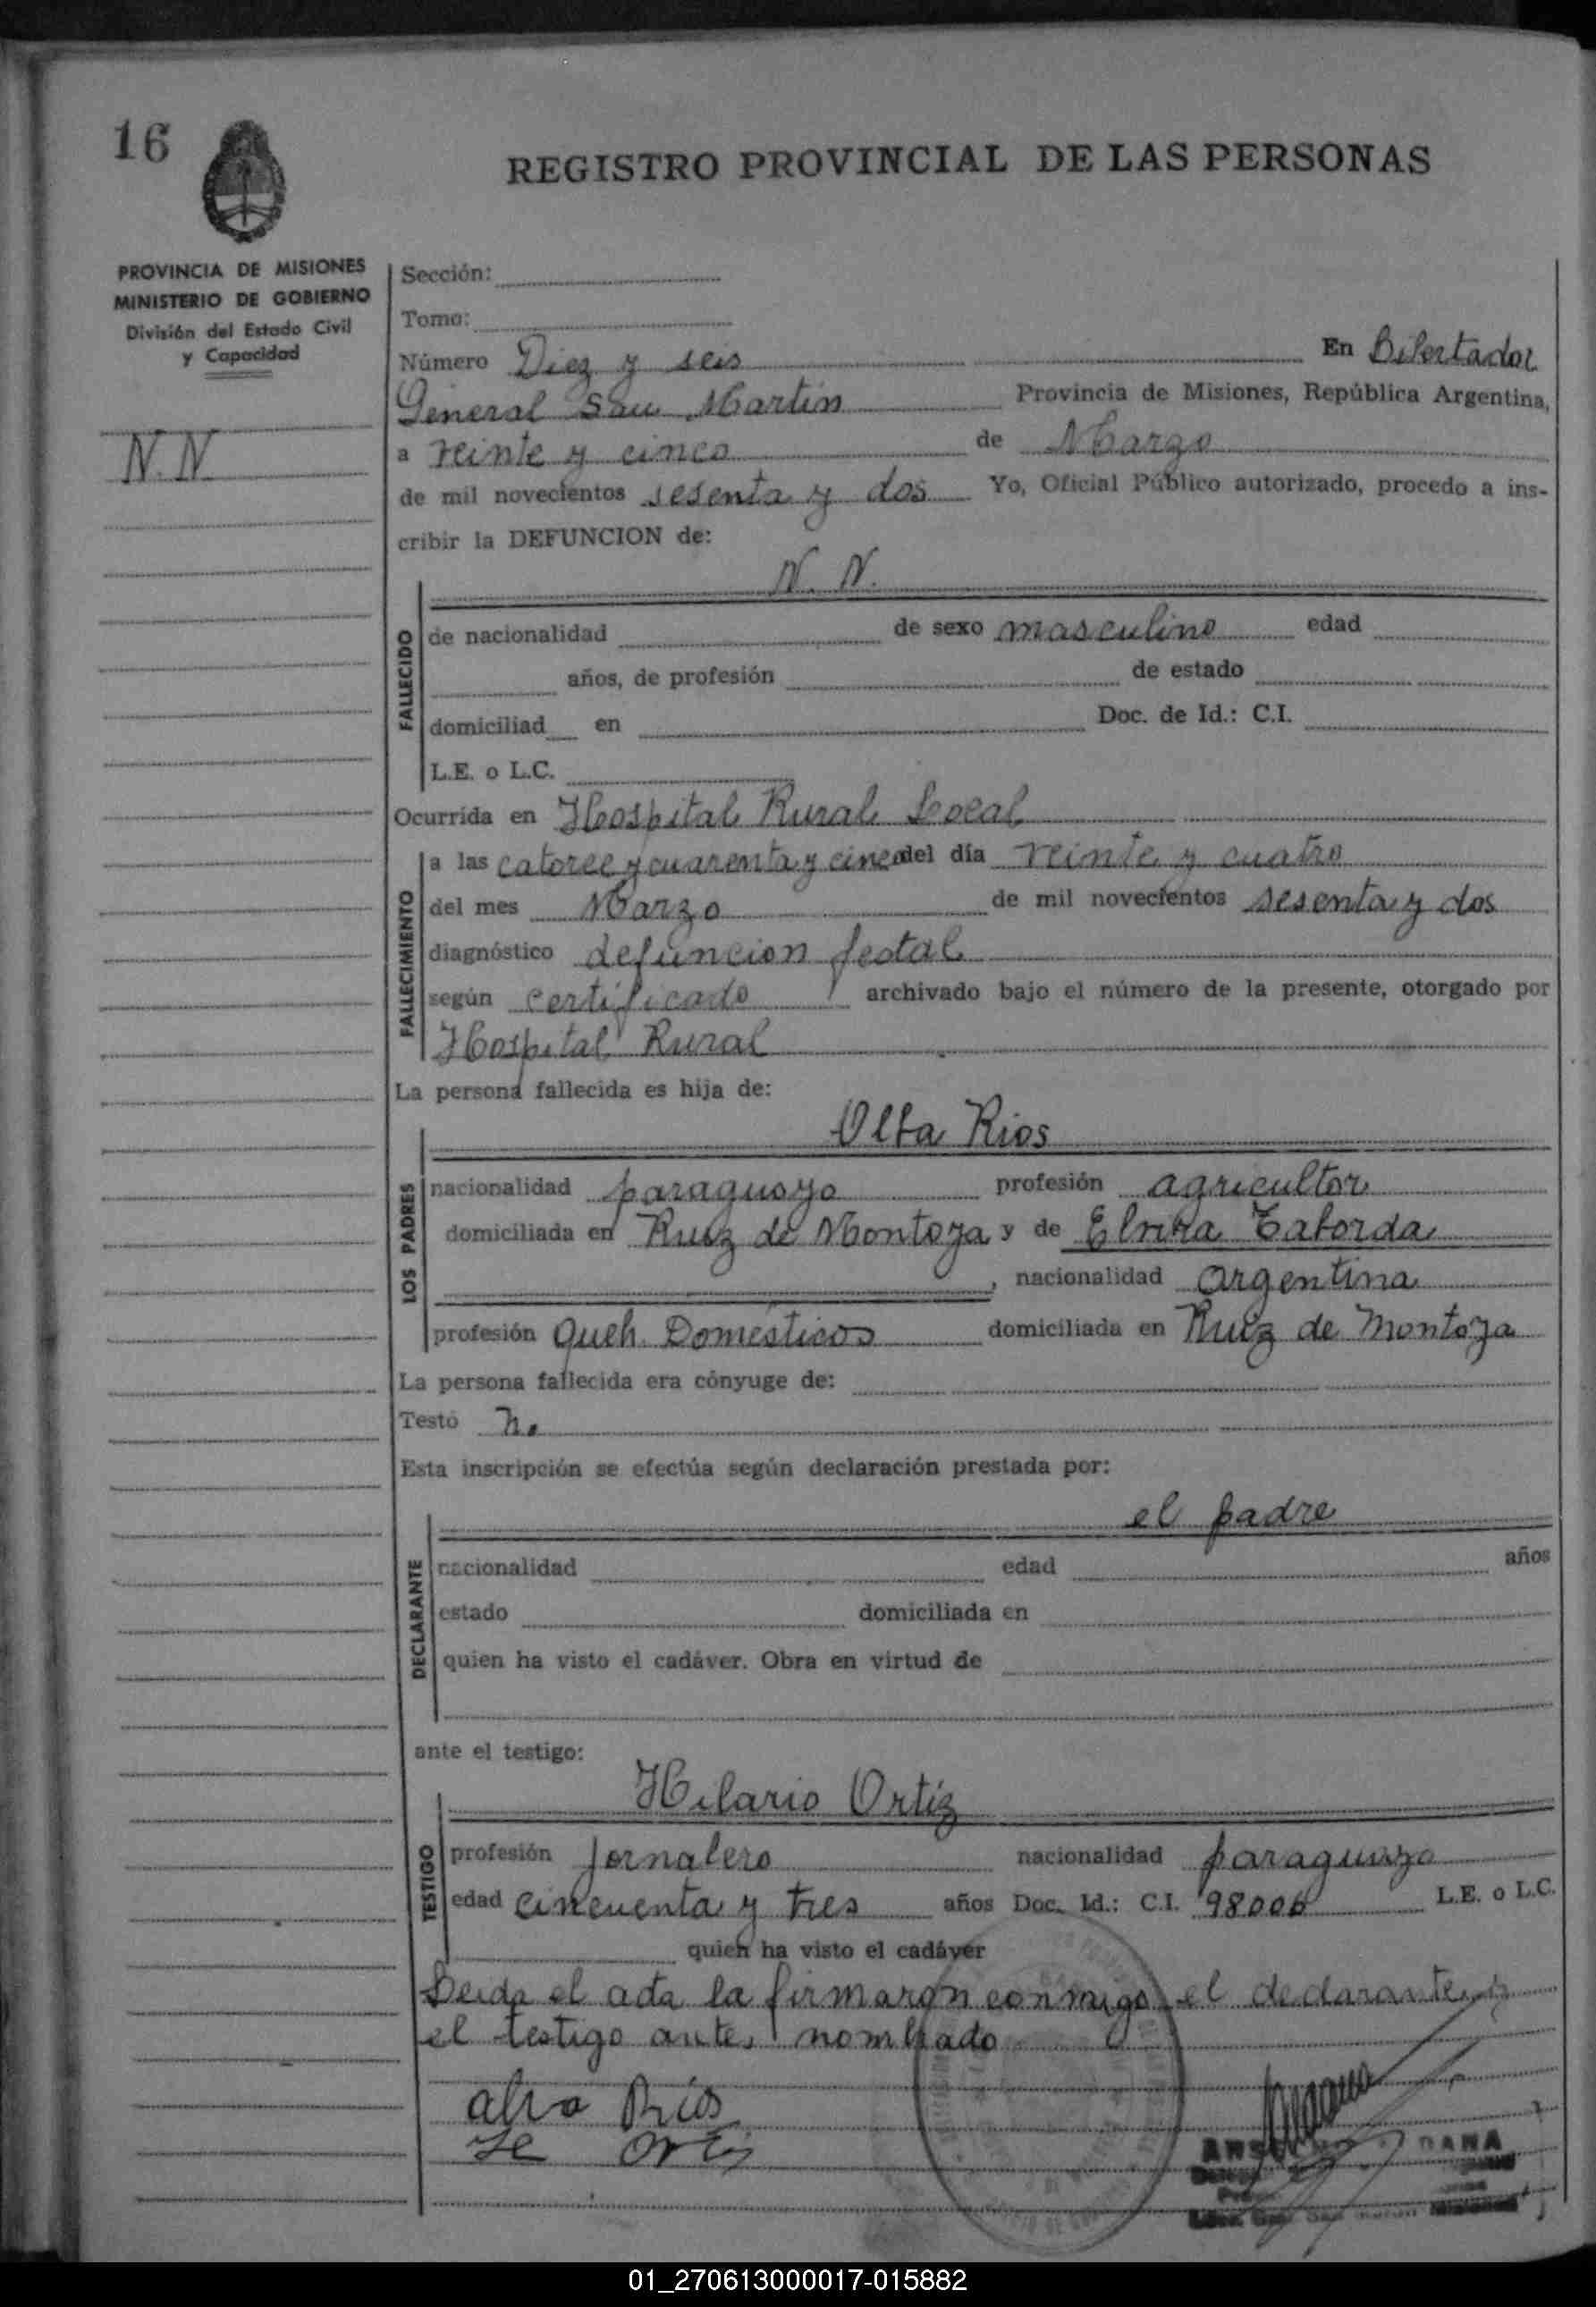 16
REGISTRO PROVINCIAL DE LAS PERSONAS
PROVINCIA DE MISIONES
MINISTERIO DE GOBIERNO
División del Estado Civil
y Capacidad
N.N
Sección:
Tomo:
Número Diez y seis En Libertador
General San Martin Provincia de Misiones, República Argentina,
a veinte y cinco de Marzo
de mil novecientos sesenta y dos Yo, Oficial Público autorizado, procedo a ins-
cribir la DEFUNCION de:
N. N.
FALLECIDO
de nacionalidad de sexo masculino edad
años, de profesión de estado
domiciliad en Doc. de Id.: C.I.
L.E. o L.C.
Ocurrida en Hospital Rural Local
FALLECIMIENTO
a las catorce y cuarenta y cinco del día veinte y cuatro
del mes Marzo de mil novecientos sesenta y dos
diagnóstico defuncion feotal
según certificado archivado bajo el número de la presente, otorgado por
Hospital Rural
La persona fallecida es hija de:
Rios
LOS PADRES
nacionalidad paraguayo profesión agricultor
domiciliada en Ruiz de Montoya y de Taborda
, nacionalidad argentina
profesión Queh. Domésticos domiciliada en Ruiz de Montoya
La persona fallecida era cónyuge de:
Testó no
Esta inscripción se efectúa según declaración prestada por:
el padre
DECLARANTE
nacionalidad edad años
estado domiciliada en
quien ha visto el cadáver. Obra en virtud de
ante el testigo:
Hilario Ortiz
TESTIGO
profesión jornalero nacionalidad paraguayo
edad cincuenta y tres años Doc. Id.: C.I. 98006 L.E. o L.C.
quien ha visto el cadáver
Leida el acta la firmaron conmigo el declarante y
el testigo antes nombrado
Rios
01_270613000017-015882